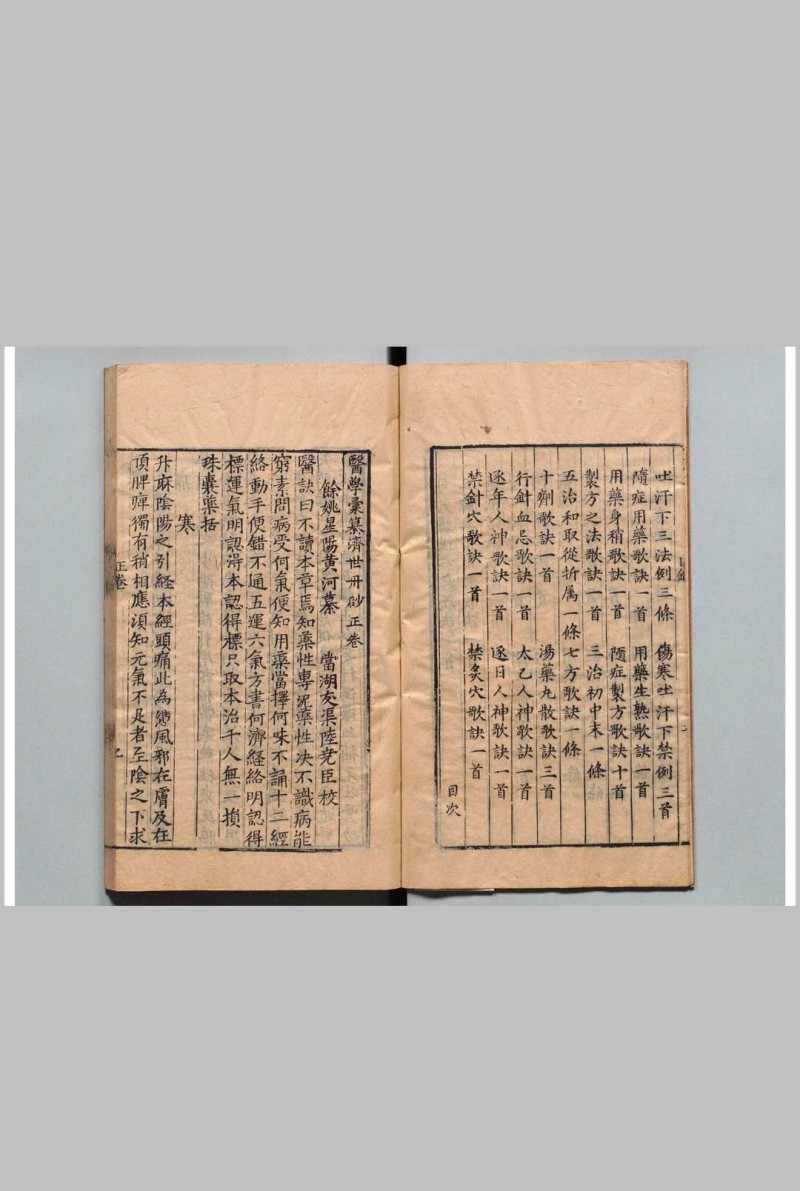 吐汗下三法例三條　傷寒吐汗下禁例三首
隨症用藥歌訣一首　用藥生熟歌訣一首
用藥身稍歌訣一首　隨症製方歌訣十首
製方之法歌訣一首　三治初中末一條
五治和取從折属一條七方歌訣一條
十劑歌訣一首　湯藥丸散歌訣三首
行針血忌歌訣一首　太乙人神歌訣一首
逐年人神歌訣一首　逐日人神歌訣一首
禁針穴歌訣一首　禁炙穴歌訣一首
目次
醫學彙纂濟世丹砂正卷
餘姚星陽黃河纂　當湖友渠陸尭臣校
醫訣曰不讀本草焉知藥性專泥藥性决不識病能
窮素問病受何氣便知用藥當擇何味不誦十二經
絡動手便錯不通五運六氣方書何濟経絡明認得
標運氣明認淂本認得標只取本治千人無一損
珠囊藥括
寒
升麻陰陽之引経本經頭痛此為愆風邪在膚及在
頂脾痺獨有稍相應須知元氣不足者至陰之下求
正卷